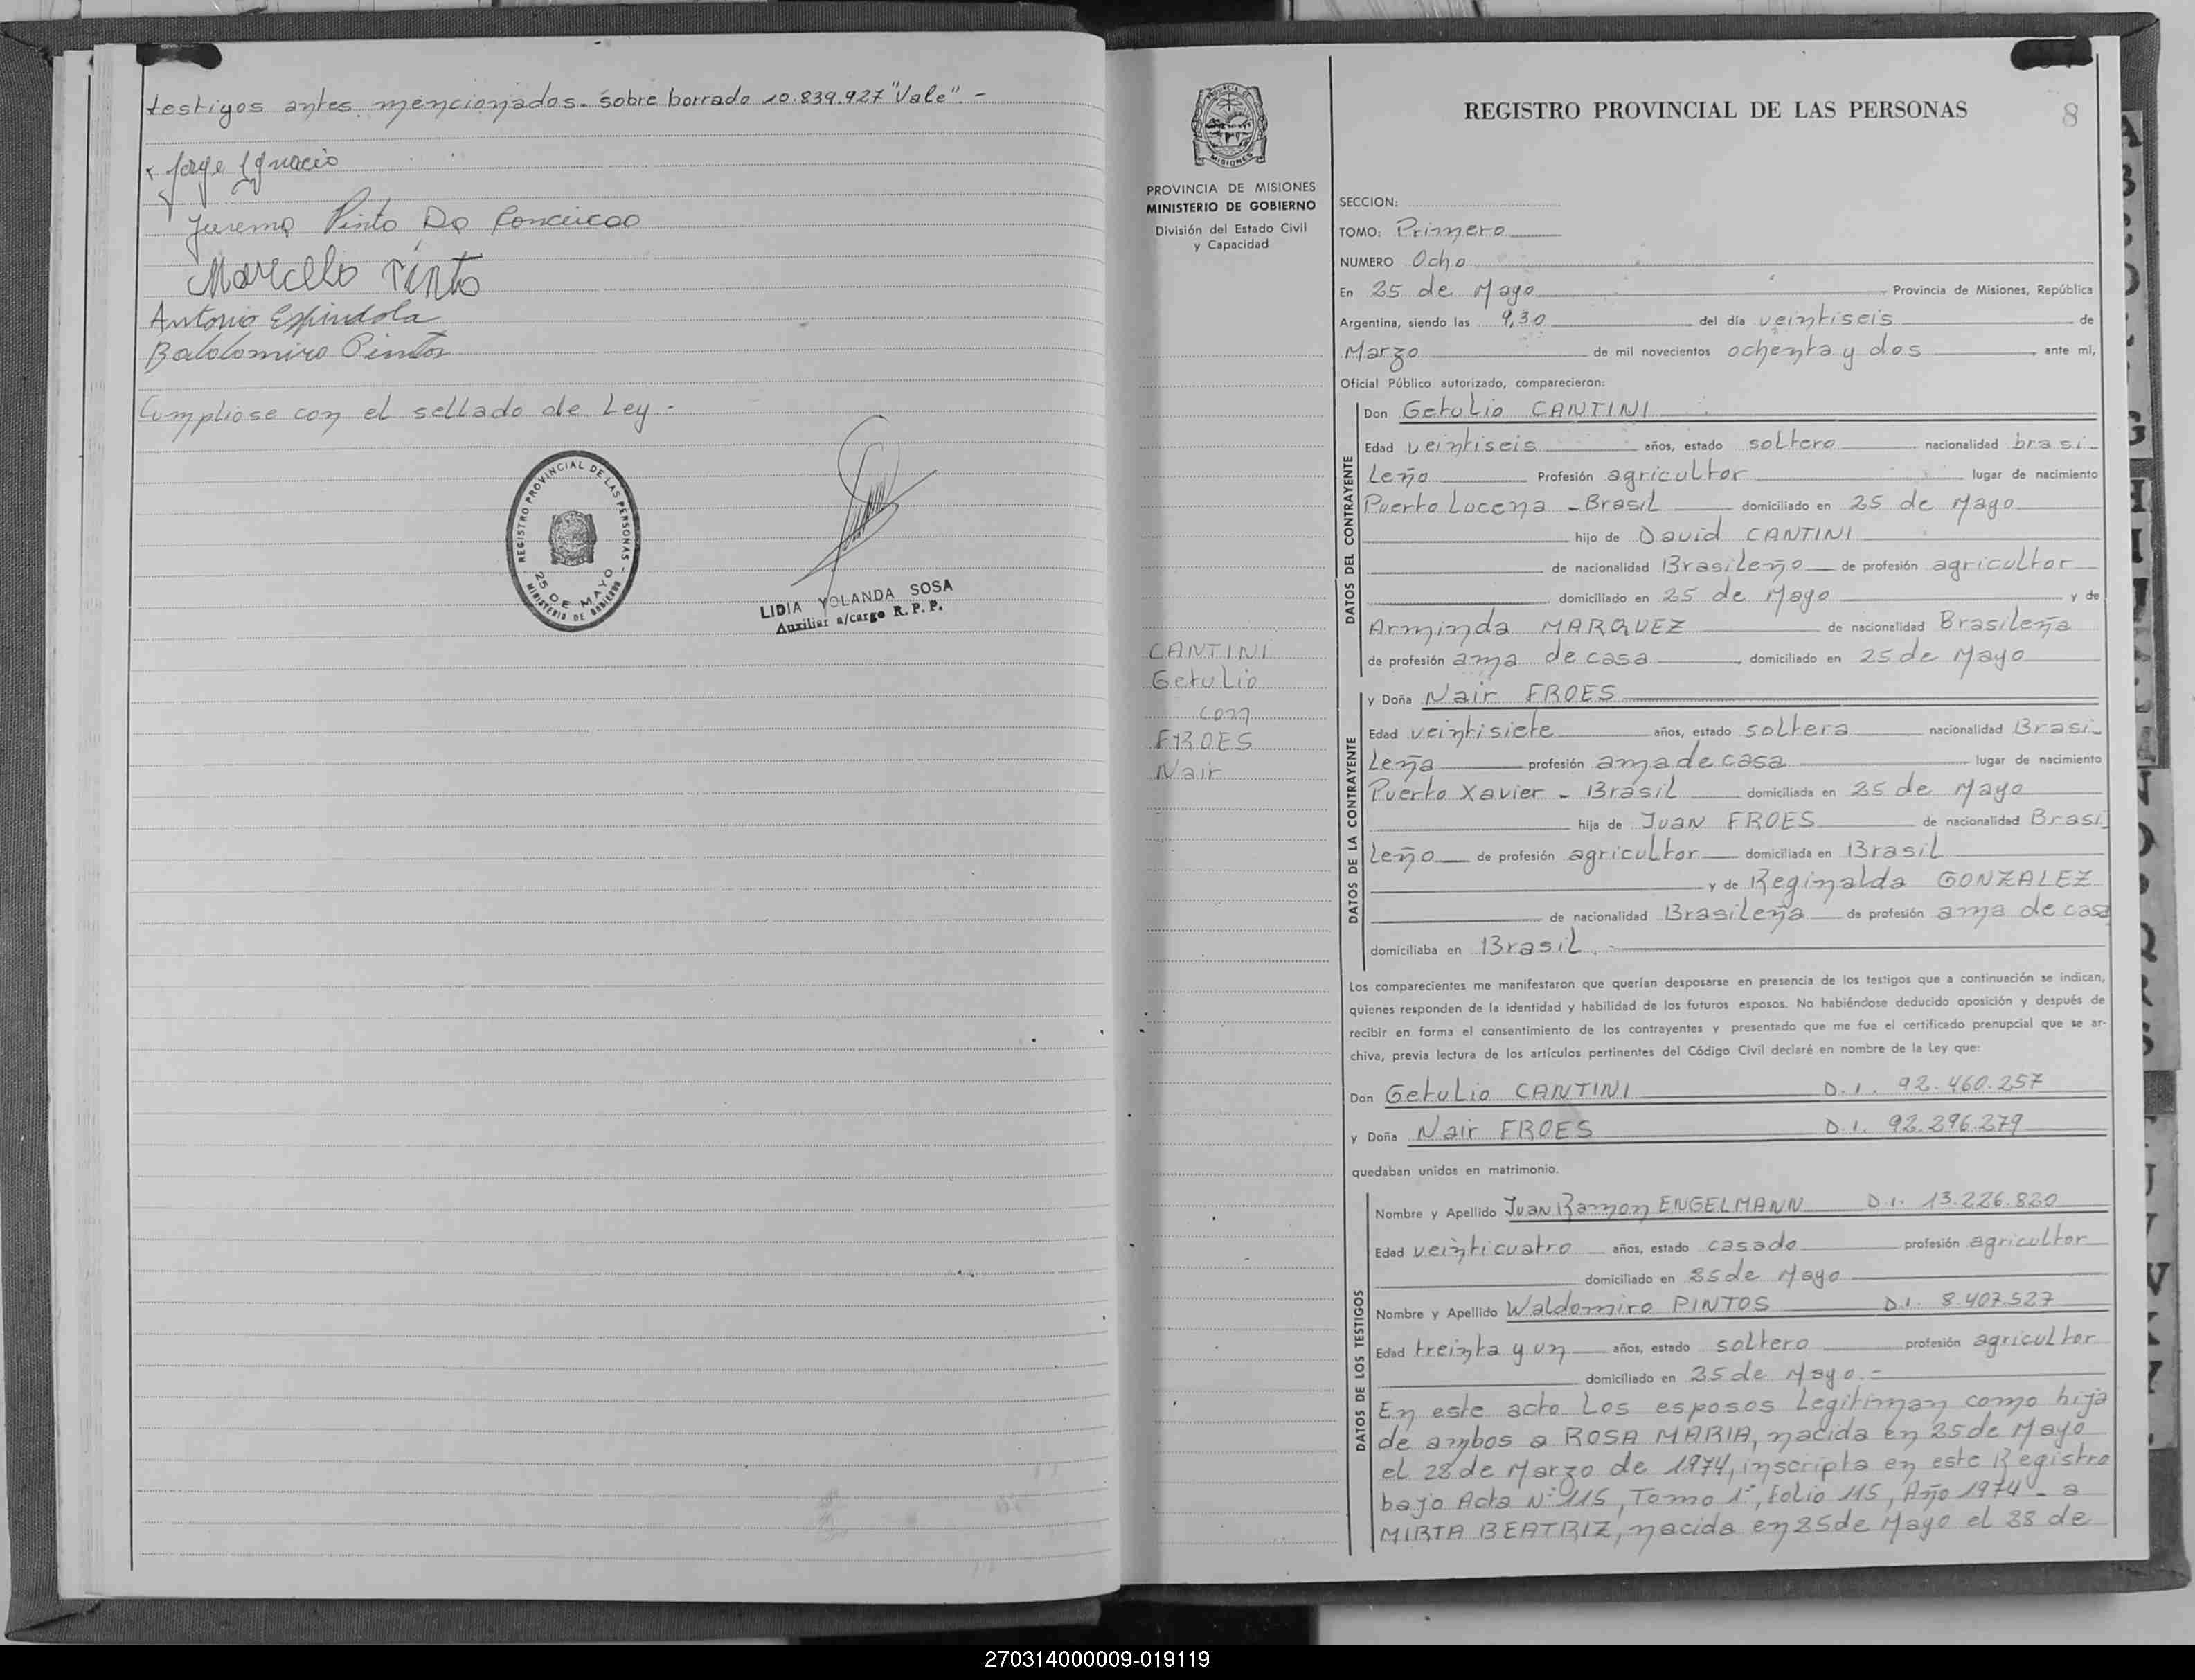 testigos antes mencionados. sobre borrado 10.839.927 "Vale". -
Jorge Ignacio
Jurema Pinto Da Conceicao
Marcelo Pinto
Antonio Espindola
Pintos
Cumpliose con el sellado de Ley -
REGISTRO PROVINCIAL DE LAS PERSONAS
25 DE MAYO
MINISTERIO DE GOBIERNO
LIDIA YOLANDA SOSA
Auxiliar a/cargo R. P. P.
MISIONES
PROVINCIA DE MISIONES
MINISTERIO DE GOBIERNO
División del Estado Civil
y Capacidad
CANTINI
Getulio
con
FROES
Nair
REGISTRO PROVINCIAL DE LAS PERSONAS
8
SECCION:
TOMO: Primero
NUMERO Ocho
En 25 de Mayo Provincia de Misiones, República
Argentina, siendo las 9,30 del día veintiseis de
Marzo de mil novecientos ochenta y dos, ante mi,
Oficial Público autorizado, comparecieron:
DATOS DEL CONTRAYENTE
Don Getulio CANTINI
Edad veintiseis años, estado soltero nacionalidad brasi-
leño Profesión agricultor lugar de nacimiento
Puerto Lucena - Brasil domiciliado en 25 de Mayo
hijo de David CANTINI
de nacionalidad Brasileño de profesión agricultor
domiciliado en 25 de Mayo y de
Arminda MARQUEZ de nacionalidad Brasileña
de profesión ama de casa, domiciliado en 25 de Mayo
DATOS DE LA CONTRAYENTE
y Doña Nair FROES
Edad veintisiete años, estado soltera nacionalidad Brasi-
leña profesión ama de casa lugar de nacimiento
Puerto Xavier - Brasil domiciliada en 25 de Mayo
hija de Juan FROES de nacionalidad Brasi
leño de profesión agricultor domiciliada en Brasil
y de Reginalda GONZALEZ
de nacionalidad Brasileña de profesión ama de casa
domiciliaba en Brasil. -
Los comparecientes me manifestaron que querían desposarse en presencia de los testigos que a continuación se indican,
quienes responden de la identidad y habilidad de los futuros esposos. No habiéndose deducido oposición y después de
recibir en forma el consentimiento de los contrayentes y presentado que me fue el certificado prenupcial que se ar-
chiva, previa lectura de los artículos pertinentes del Código Civil declaré en nombre de la Ley que:
Don Getulio CANTINI D.I. 92.460.257
y Doña Nair FROES D.I. 92.296.279
quedaban unidos en matrimonio.
DATOS DE LOS TESTIGOS
Nombre y Apellido Juan Ramon ENGELMANN D.I. 13.226.820
Edad veinticuatro años, estado casado profesión agricultor
domiciliado en 25 de Mayo
Nombre y Apellido Waldomiro PINTOS D.I. 8.407.527
Edad treinta y un años, estado soltero profesión agricultor
domiciliado en 25 de Mayo. -
En este acto los esposos legitiman como hija
de ambos a ROSA MARIA, nacida en 25 de Mayo
el 28 de Marzo de 1974, inscripta en este Registro
bajo Acta N° 115, Tomo 1°, Folio 115, Año 1974 - a
MIRTA BEATRIZ, nacida en 25 de Mayo el 28 de
270314000009-019119